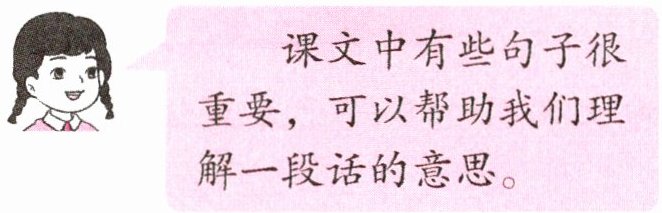 课文中有些句子很
重要，可以帮助我们理
解一段话的意思。